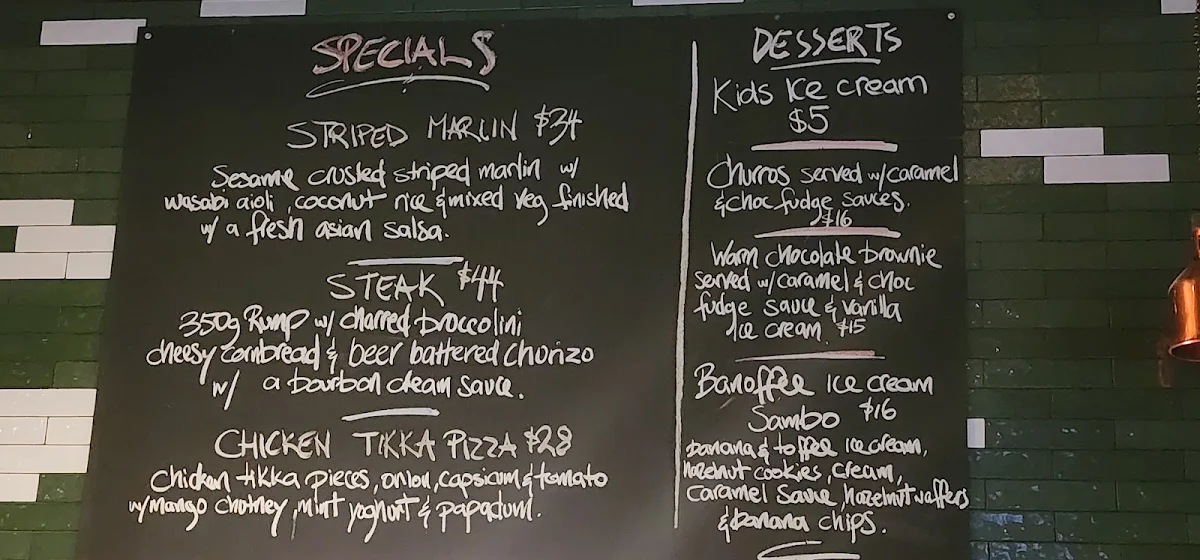 SPECIALS
STRIPED MARLIN $34
Sesame crusted striped marlin w/
wasabi aioli, coconut rice & mixed veg finished
w/ a fresh asian salsa.
STEAK $44
350g Rump w/ charred broccolini
cheesy cornbread & beer battered chorizo
w/ a bourbon cream sauce.
CHICKEN TIKKA PIZZA $28
chicken tikka pieces, onion, capsicum & tomato
w/ mango chutney, mint yoghurt & papadum.
DESSERTS
Kids Ice cream
$5
Churros served w/ caramel
& choc fudge sauces.
$16
Warm chocolate brownie
served w/ caramel & choc
fudge sauce & vanilla
Ice cream. $15
Banoffee Ice cream
Sambo $16
banana & toffee ice cream,
hazelnut cookies, cream,
caramel sauce, hazelnut waffers
& banana chips.